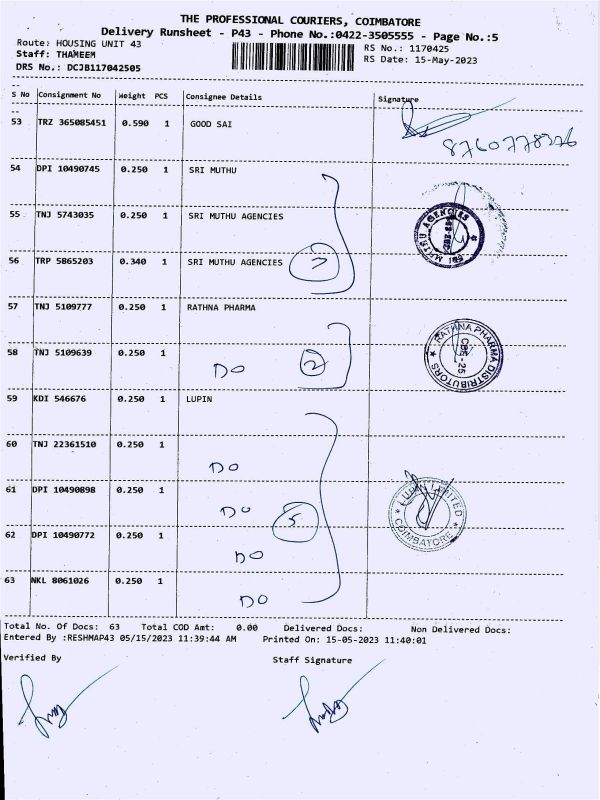 THE PROFESSIONAL COURIERS, COIMBATORE
Delivery Runsheet - P43 - Phone No.:0422-3505555 - Page No.:5
Route: HOUSING UNIT 43
RS No.: 1170425
Staff: THAMEEM
RS Date: 15-May-2023
DRS No.: DCJB117042505
S No Consignment No Weight PCS Consignee Details Signature
53 TRZ 365085451 0.590 1 GOOD SAI
54 DPI 10490745 0.250 1 SRI MUTHU
55 TNJ 5743035 0.250 1 SRI MUTHU AGENCIES
56 TRP 5865203 0.340 1 SRI MUTHU AGENCIES 3
57 TNJ 5109777 0.250 1 RATHNA PHARMA
RATHNA PHARMA DISTRIBUTORS CBE - 25
58 TNJ 5109639 0.250 1 DO 2
59 KDI 546676 0.250 1 LUPIN
60 TNJ 22361510 0.250 1 DO
61 DPI 10490898 0.250 1 DO 5
LUPIN LIMITED COIMBATORE
62 DPI 10490772 0.250 1 DO
63 NKL 8061026 0.250 1 DO
Total No. Of Docs: 63 Total COD Amt: 0.00 Delivered Docs: Non Delivered Docs:
Entered By :RESHMAP43 05/15/2023 11:39:44 AM Printed On: 15-05-2023 11:40:01
Verified By Staff Signature